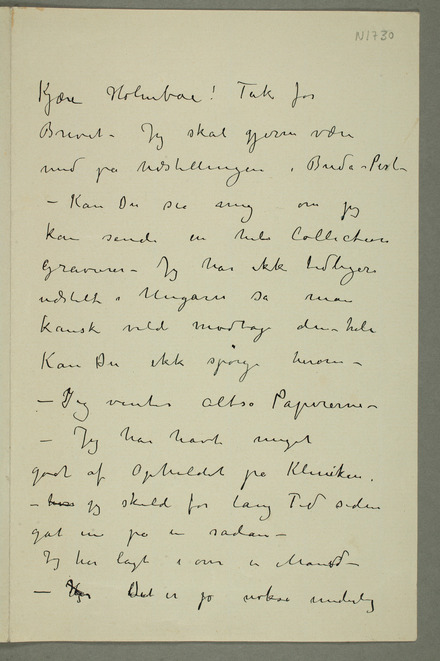 N1730
Kjære Holmboe! Tak for
Brevet – Jeg skal gjerne være
med på Udstillingen i Buda-Pest
– Kan Du sia mig om jeg
kan sende en hele Collection
Gravurer – Jeg har ikke tidligere
udstilt i Ungarn så man
kanske vild modtage den hele
Kan Du ikke spørge herom –
– Jeg venter altså Papirerne –
– Jeg har havt meget
godt af Opholdet på Kliniken.
– jeg skuld for lang Tid siden
gåt in på en sådan –
Jeg har lagt i over en Måned –
– Det er jo nokså underlig